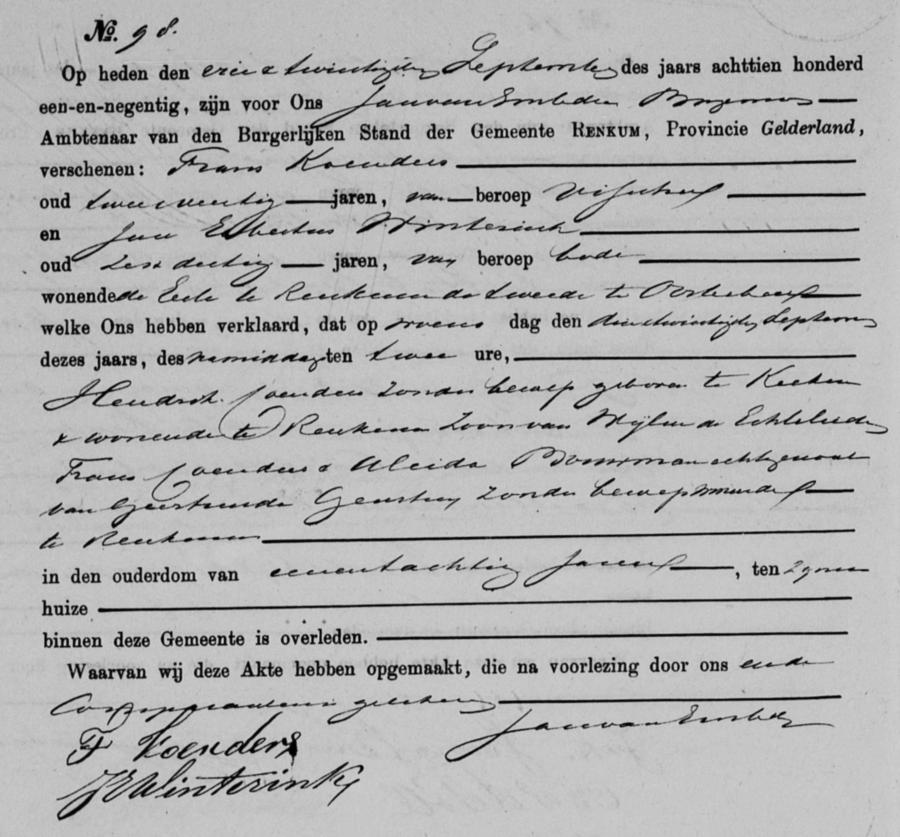 No. 98.
Op heden den een & twintigsten September des jaars achttien honderd
een-en-negentig, zijn voor Ons Jan van Embden
Ambtenaar van den Burgerlijken Stand der Gemeente RENKUM, Provincie Gelderland,
verschenen: Frans Koenders
oud tweeveertig jaren, van beroep
en Jan Elbertus Winterink
oud zesdertig jaren, van beroep bode
wonende de Eerste te Renkum de tweede te Oosterbeek
welke Ons hebben verklaard, dat op dag den September
dezes jaars, des namiddag ten twee ure,
Koenders zonder beroep geboren te
& wonende te Renkum Zoon van Wijlen de Echtelieden
Frans Koenders & Aleida echtgenoot
van Geertruida zonder beroep wonende
te Renkum
in den ouderdom van eenentachtig Jaren, ten zynen
huize
binnen deze Gemeente is overleden.
Waarvan wij deze Akte hebben opgemaakt, die na voorlezing door ons ende
Comparanten is geteekend
Jan van Embden
F Koenders
JE Winterink